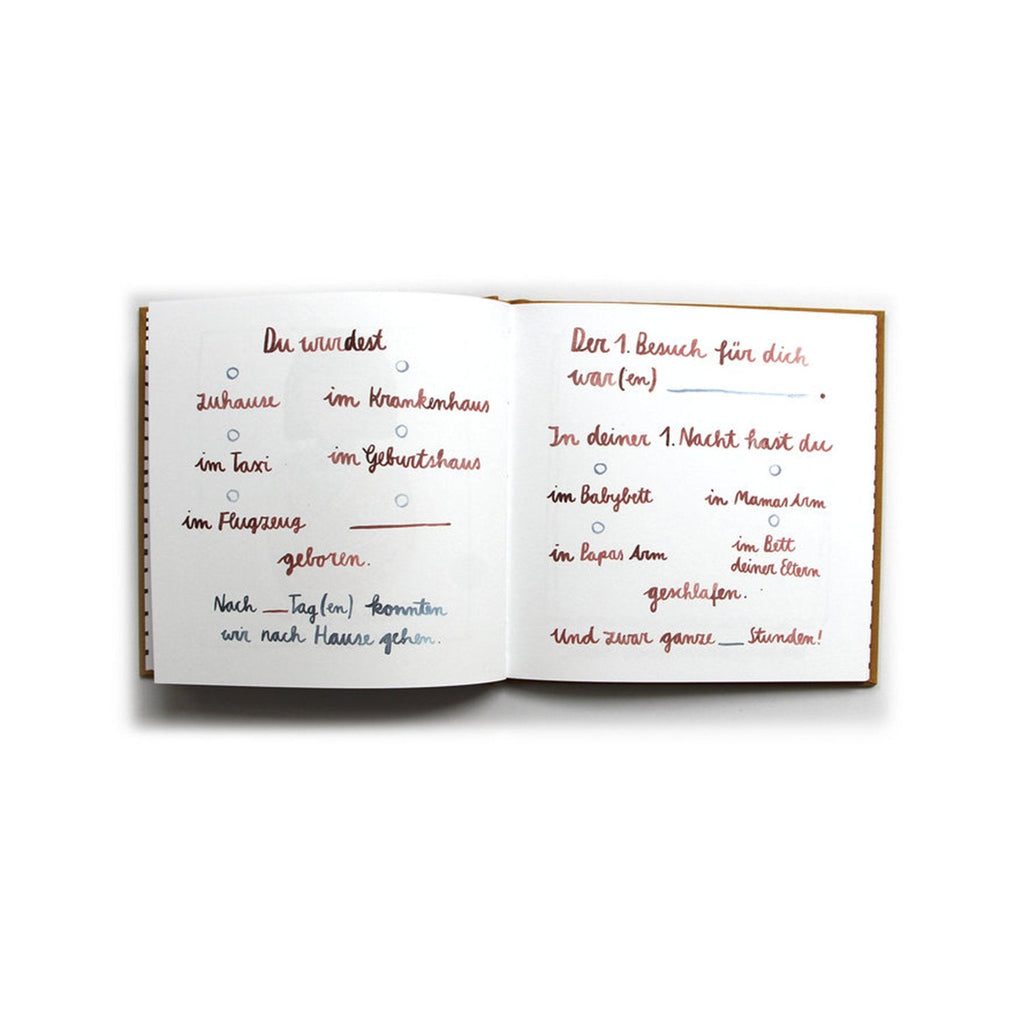 Du wurdest
zuhause im Krankenhaus
im Taxi im Geburtshaus
im Flugzeug
geboren.
Nach __ Tag(en) konnten
wir nach Hause gehen.
Der 1. Besuch für dich
war(en) ________.
In deiner 1. Nacht hast du
im Babybett in Mamas Arm
in Papas Arm im Bett
deiner Eltern
geschlafen.
Und zwar ganze __ Stunden!